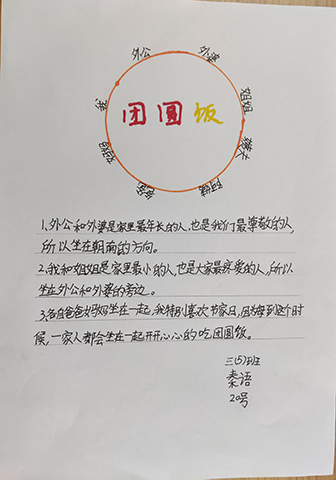 外公
外婆
我
姐姐
团圆饭
妈妈
姨丈
爸爸
阿姨
1、外公和外婆是家里最年长的人,也是我们最尊敬的人,
所以坐在朝南的方向。
2、我和姐姐是家里最小的人,也是大家最疼爱的人,所以
坐在外公和外婆的旁边。
3、各自爸爸妈妈坐在一起,我特别喜欢节家日,因为每到这个时
候,一家人都会坐在一起开开心心的吃团圆饭。
三(5)班
秦语
20号